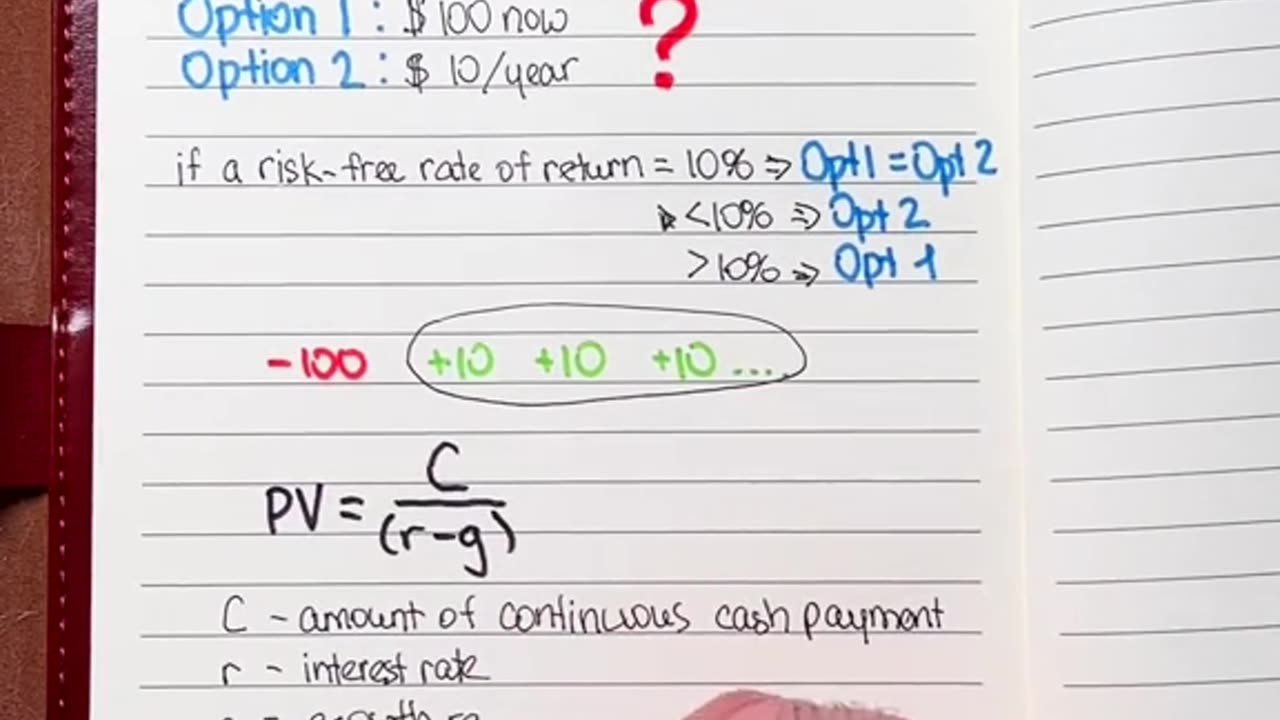 Option 1 : $ 100 now ?
Option 2 : $ 10/year
if a risk-free rate of return = 10% => Opt 1 = Opt 2
<10% => Opt 2
>10% => Opt 1
-100 +10 +10 +10 ....
PV = C
(r-g)
C - amount of continuous cash payment
r - interest rate